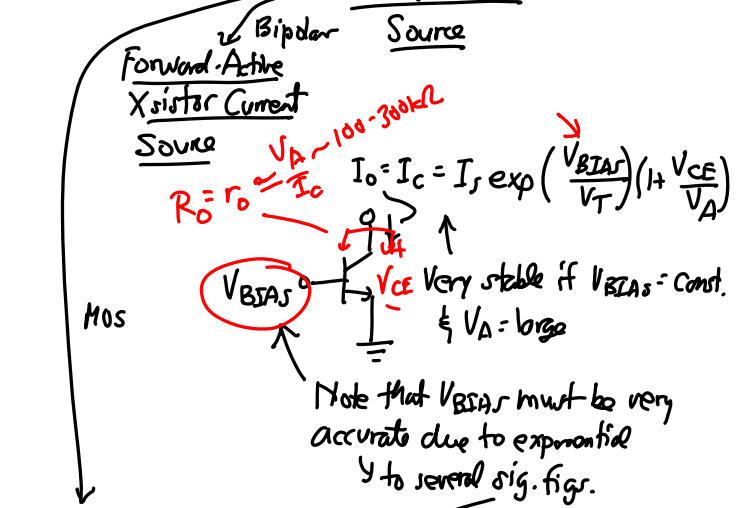 Bipolar
Source
Forward-Active
Xsistor Current
Source
R_o = r_o ≃ V_A/I_C ~ 100-300kΩ
I_o = I_C = I_s exp(V_BIAS/V_T)(1+V_CE/V_A)
+
V_CE
-
V_BIAS
Very stable if V_BIAS = const.
& V_A = large
MOS
Note that V_BIAS must be very
accurate due to exponential
to several sig. figs.